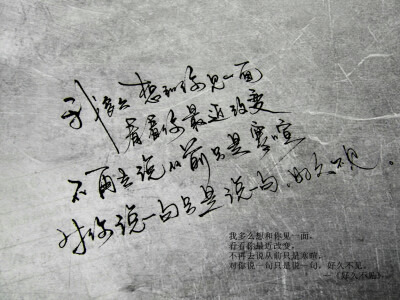 我多么想和你见一面
看看你最近改变
不再去说从前只是寒暄
对你说一句只是说一句,好久不见。
我多么想和你见一面,
看看你最近改变,
不再去说从前只是寒暄,
对你说一句只是说一句,好久不见。
—《好久不见》